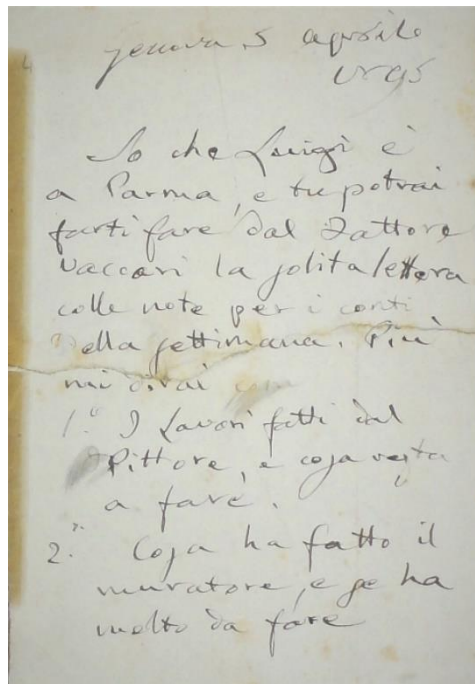 Genova, 5 aprile
So che Luigi è
a Parma, e tu potrai
farti fare dal Fattore
Vaccari la solita lettera
colle note per i conti
della settimana. Più
mi dirai
1.° I Lavori fatti dal
Pittore, e cosa resta
a fare.
2.° Cosa ha fatto il
muratore, e se ha
molto da fare